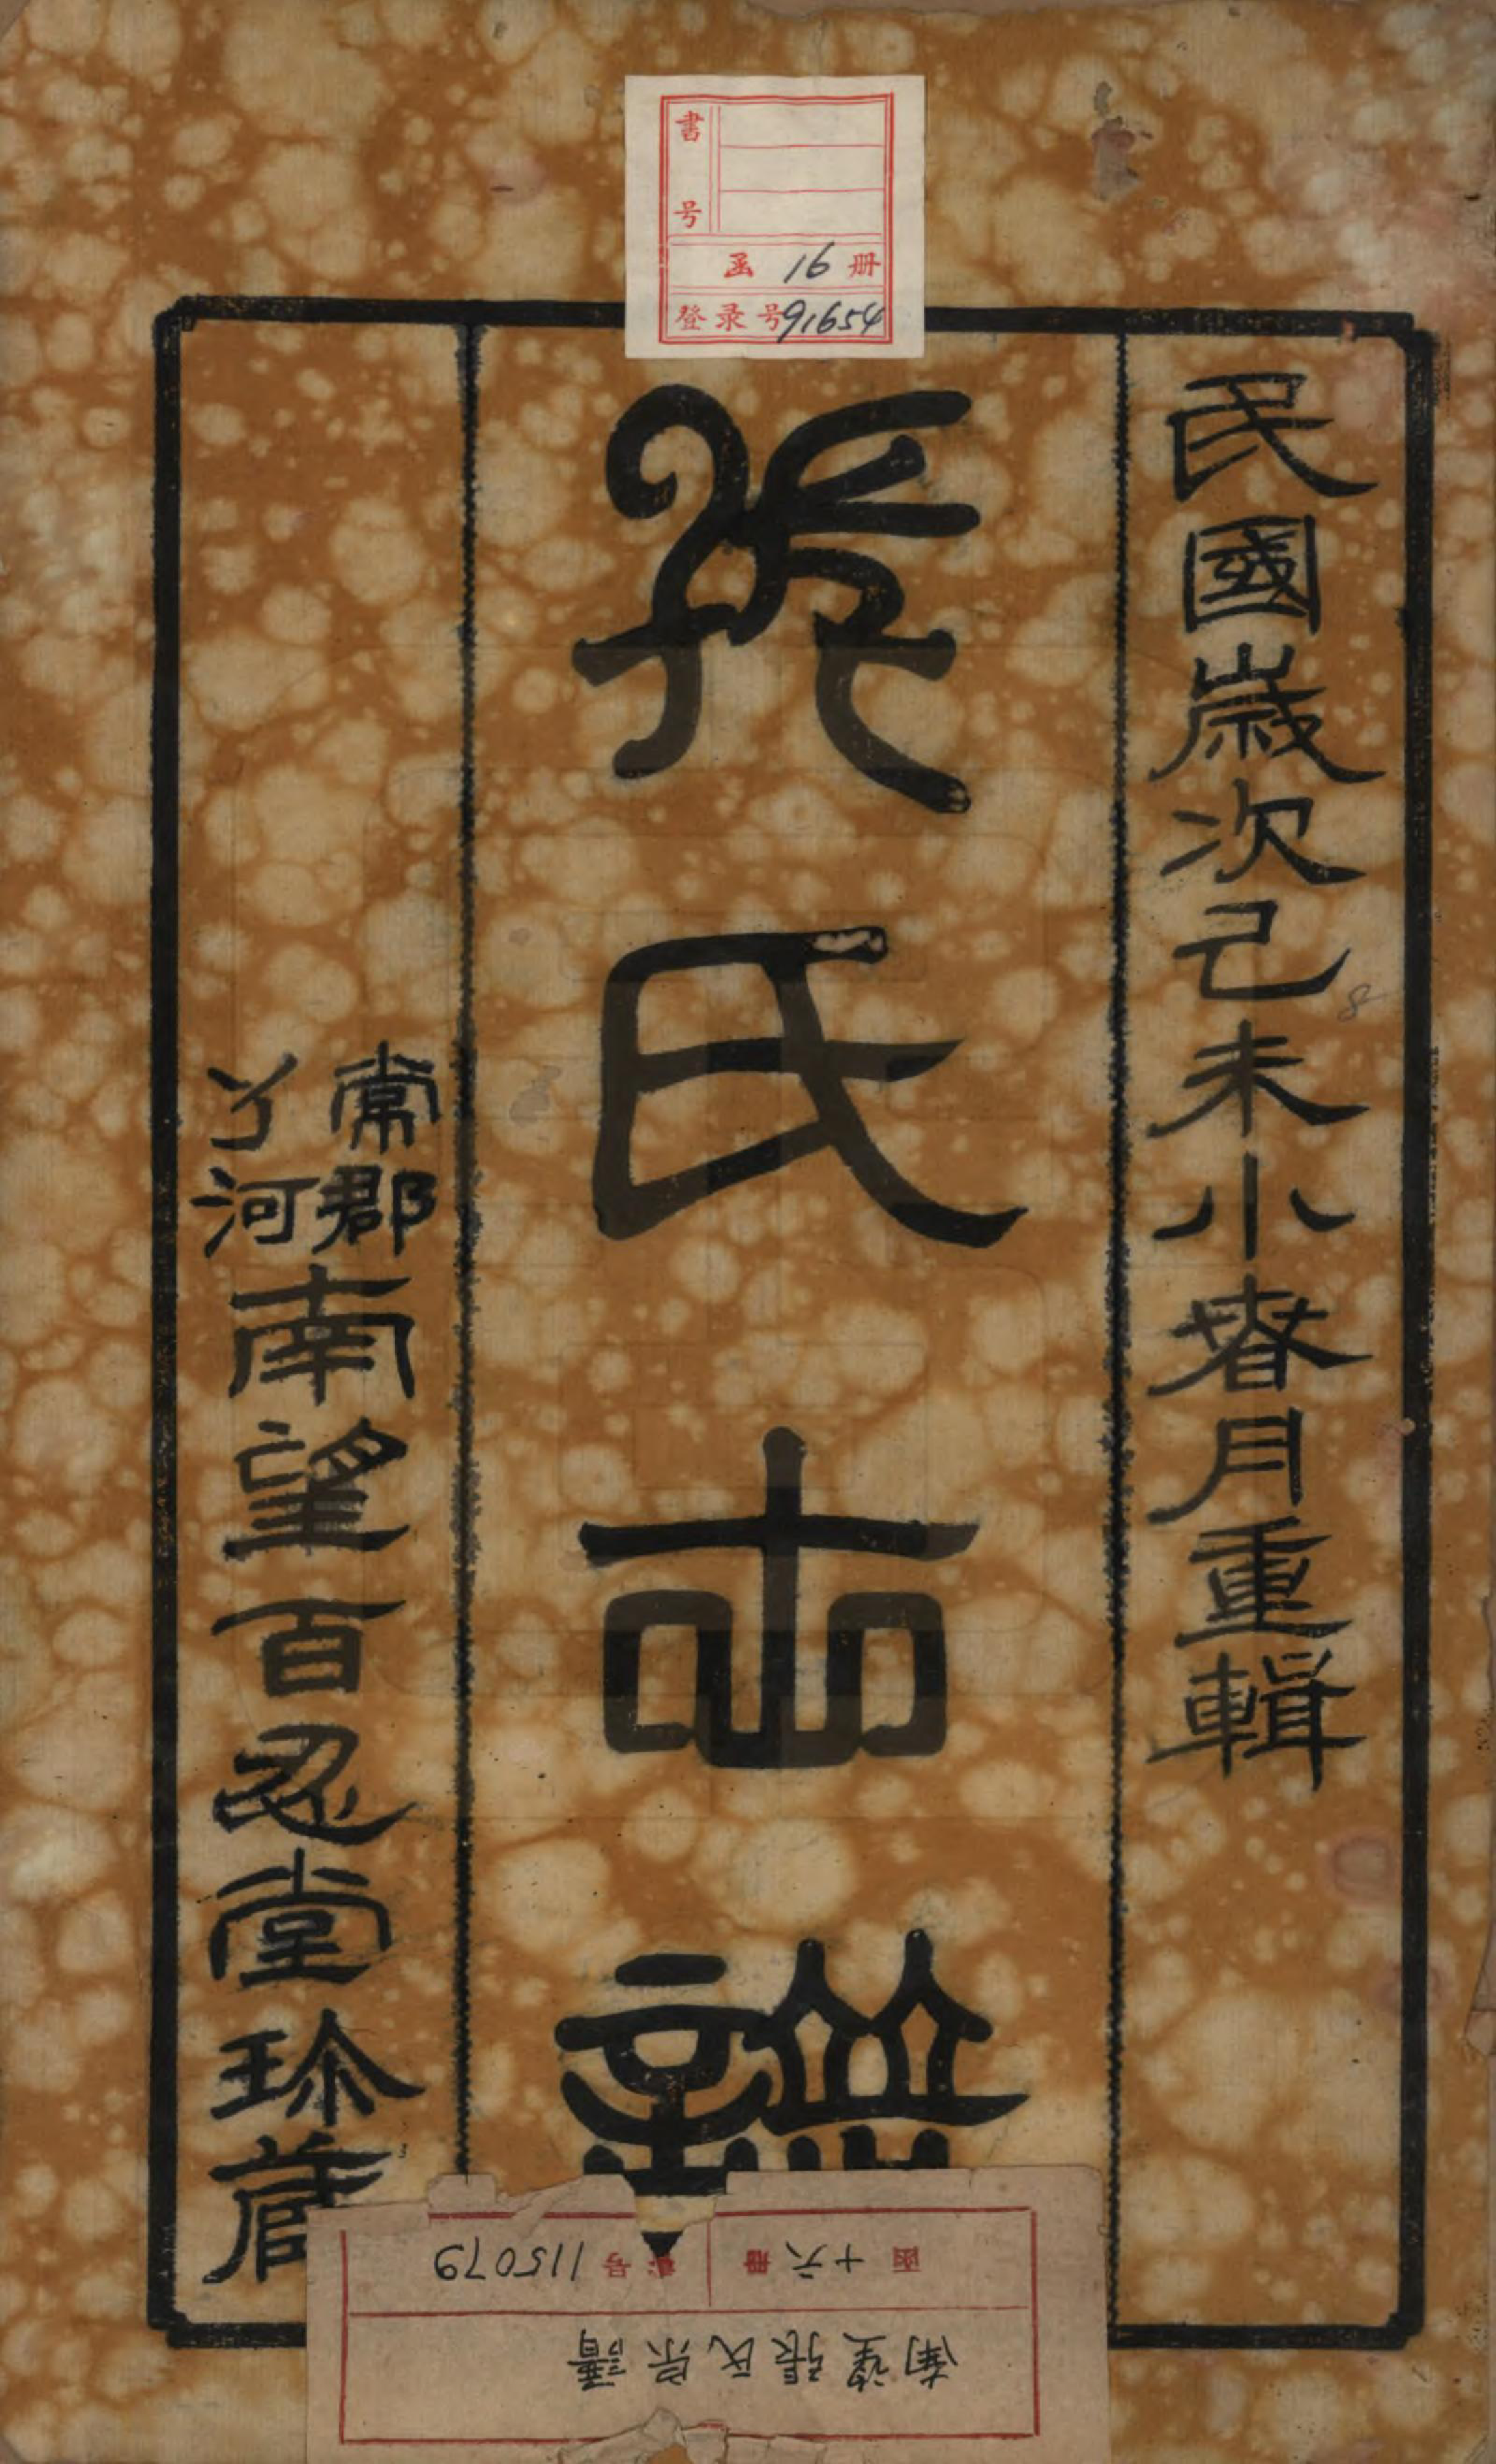 書号
函 16 册
登录号 91654
民國歲次己未小春月重輯
張氏世譜
常郡
丫河
南望百忍堂珍藏
南望張氏宗譜
函 十六 册 号 115079